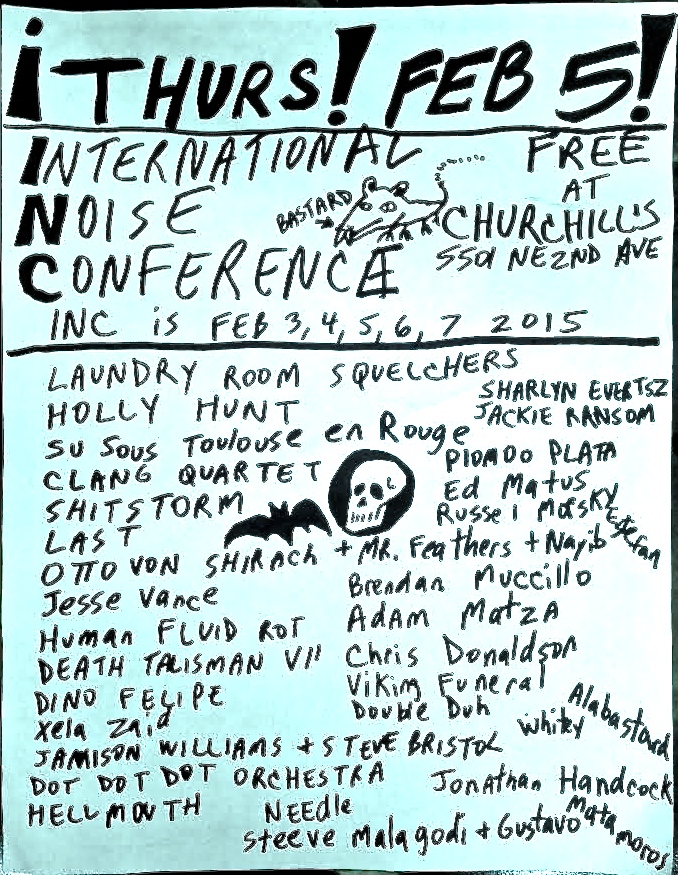 ¡THURS! FEB 5!
INTERNATIONAL
NOISE
CONFERENCE
BASTARD
FREE
AT
CHURCHILL'S
5501 NE 2ND AVE
INC is FEB 3, 4, 5, 6, 7 2015
LAUNDRY ROOM SQUELCHERS
HOLLY HUNT
SU SOUS TOULOUSE en ROUGE
CLANG QUARTET
SHITSTORM
LAST
OTTO VON SHIRACH + MR. Feathers + Nayib Estefan
Jesse Vance
Human FLUID ROT
DEATH TALISMAN VII
DINO FELIPE
Xela Zaid
JAMISON WILLIAMS + STEVE BRISTOL
DOT DOT DOT ORCHESTRA
HELLMOUTH
NEEdle
Steeve Malagodi + Gustavo Matamoros
SHARLYN EVERTSZ
JACKIE RANSOM
PIOMOO PLATA
Ed Matus
Russel Mofsky
Brendan Muccillo
Adam Matza
Chris Donaldson
Viking Funeral
Double Duh
Whitey Alabastard
Jonathan Handcock